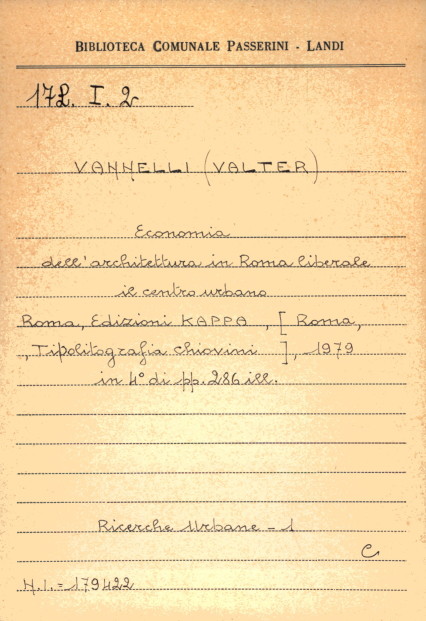 BIBLIOTECA COMUNALE PASSERINI - LANDI
172. I. 2
VANNELLI (VALTER)
Economia
dell'architettura in Roma liberale
il centro urbano
Roma, Edizioni KAPPA, [ Roma,
, Tipolitografia Chiovini ], 1979
in 4° di pp. 286 ill.
Ricerche Urbane - 1
C
N.I. = 179422